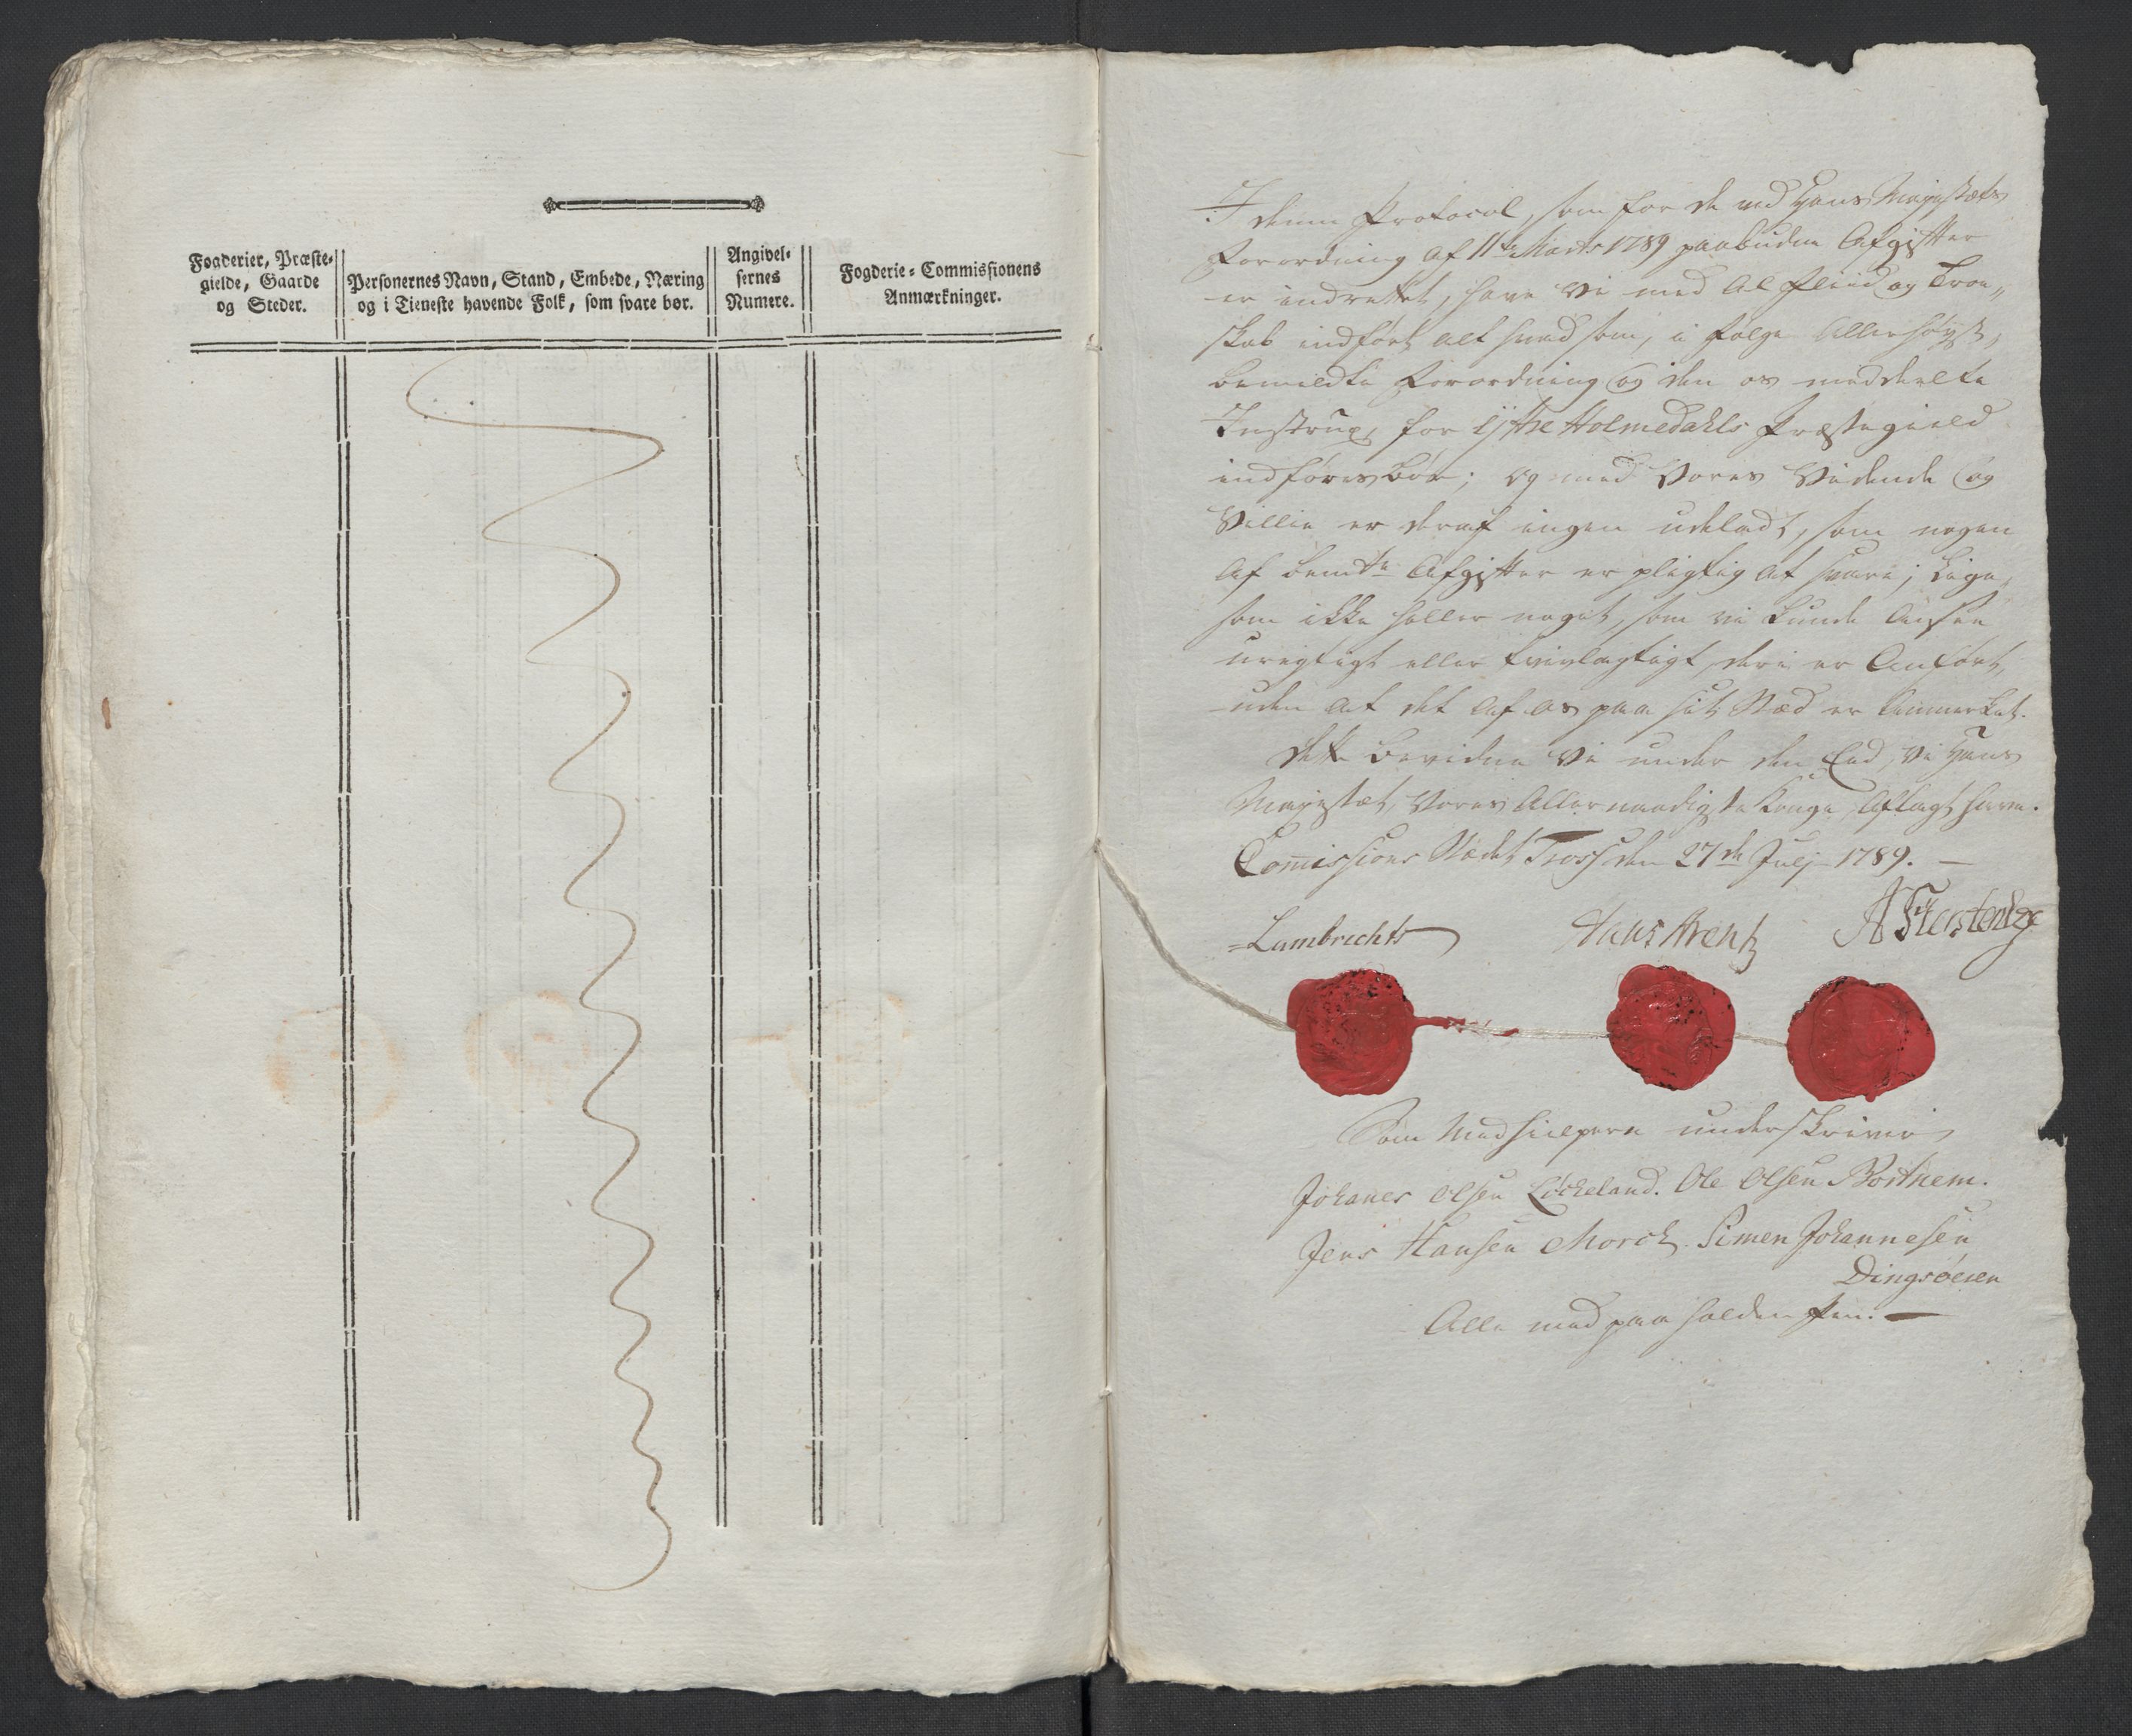 Fogderier, Præste-
gielde, Gaarde
og Steder.
Personernes Navn, Stand, Embede, Næring
og i Tieneste havende Folk, som svare bør.
Angivel-
sernes
Numere.
Fogderie-Commissionens
Anmærkninger.
I denne Protocol, som for de ved Hans Majestæts
Forordning af 11te Marts 1789 paabudne Afgifter
er indrettet, have Vi med al Fliid og Troe„
skab indført alt hvad som, i følge Allerhøyst„
bemeldte Forordning og den os meddeelte
Instrux, for Yttre Holmedahls Præstegield
indføres bør; og med Vores Vidende og
Villie er deraf ingen udeladt, som nogen
af bemdte Afgifter er pligtig at svare; Lige„
som ikke heller noget, som vi kunde Ansee
urigtigt eller tvivlagtigt, deri er Anført,
uden at det af os paa sit Stæd er Anmerket.
Dette bevidne Vi under den Eed, Vi Hans
Majestæt, Vores Allernaadigste Konge, Aflagt have.
Comissions Stædet Tross den 27de Julj 1789. —
Lambrechts
Hans Arentz
A Fierstenbge
Som Medhielpere underskriver
Johanes Olsen Løckeland. Ole Olsen Bortnem.
Jens Hansen Morck. Simen Johannesen
Dingsøeren
Alle med paaholden Pen. —